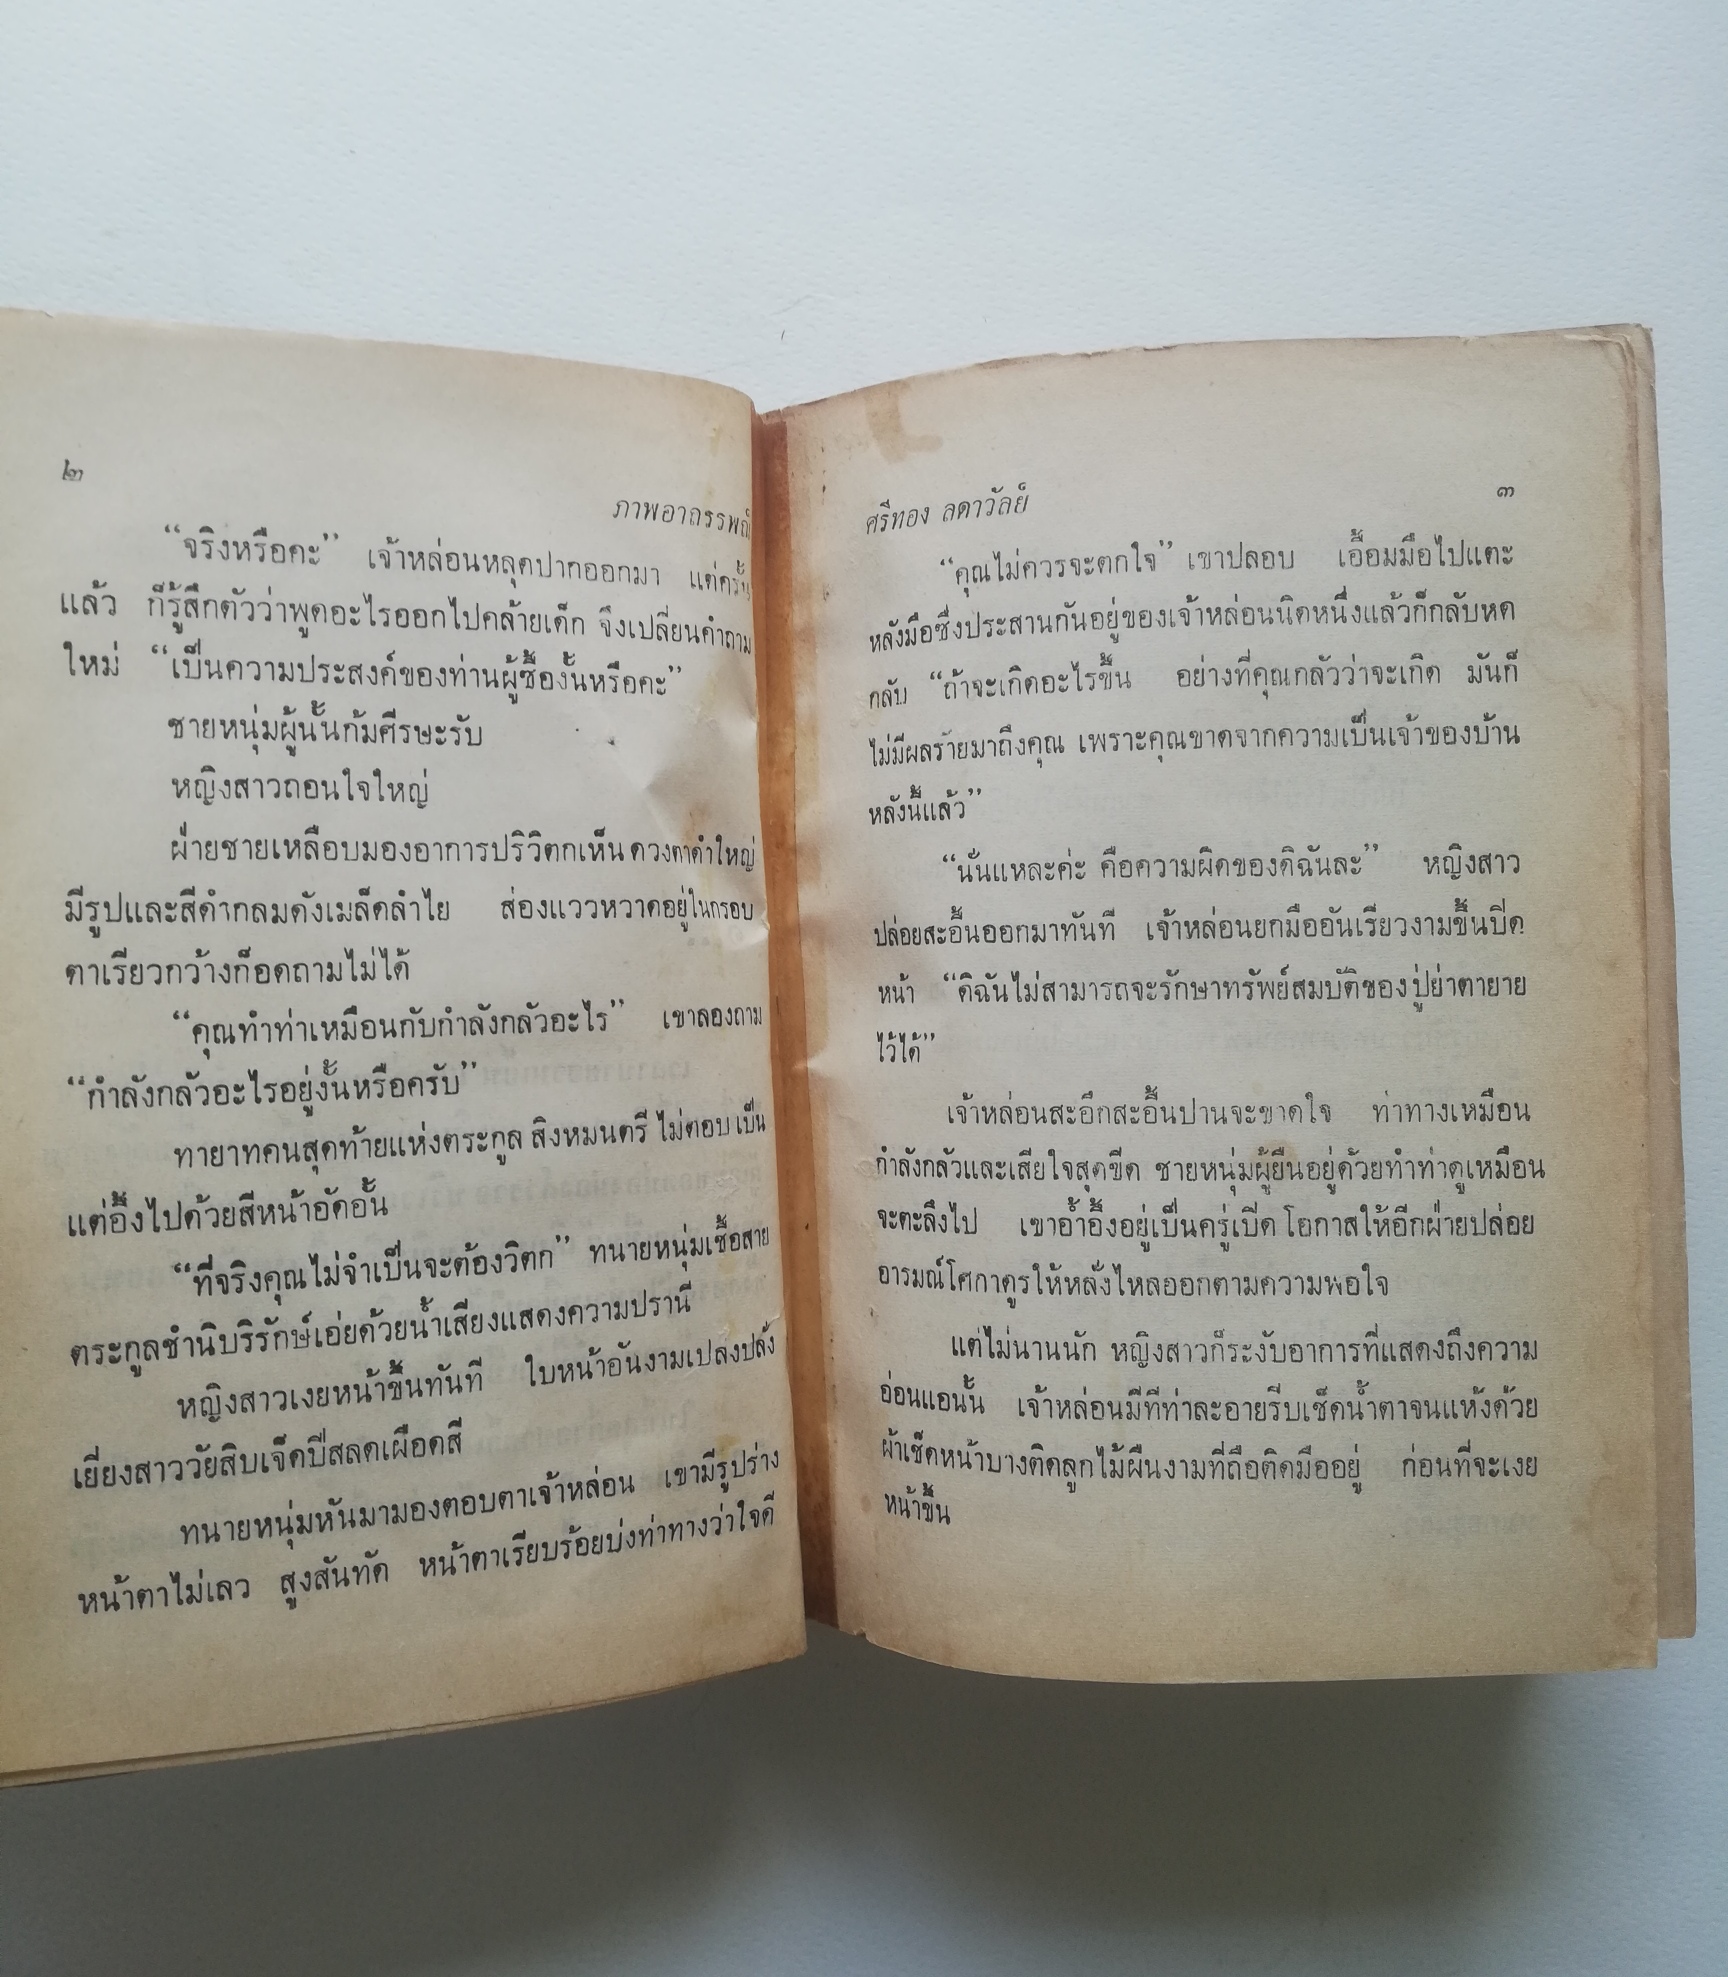 ๒
ภาพอาถรรพณ์
“จริงหรือคะ” เจ้าหล่อนหลุดปากออกมา แต่ครั้น
แล้ว ก็รู้สึกตัวว่าพูดอะไรออกไปคล้ายเด็ก จึงเปลี่ยนคำถาม
ใหม่ “เป็นความประสงค์ของท่านผู้ซื้องั้นหรือคะ”
ชายหนุ่มผู้นั้นก้มศีรษะรับ
หญิงสาวถอนใจใหญ่
ฝ่ายชายเหลือบมองอาการปริวิตกเห็น ดวงตาดำใหญ่
มีรูปและสีดำกลมดังเมล็ดลำไย ส่องแววหวาดอยู่ในกรอบ
ตาเรียวกว้างก็อดถามไม่ได้
“คุณทำท่าเหมือนกับกำลังกลัวอะไร” เขาลองถาม
“กำลังกลัวอะไรอยู่งั้นหรือครับ”
ทายาทคนสุดท้ายแห่งตระกูล สิงหมนตรี ไม่ตอบ เป็น
แต่อึ้งไปด้วยสีหน้าอัดอั้น
“ที่จริงคุณไม่จำเป็นจะต้องวิตก” ทนายหนุ่มเชื้อสาย
ตระกูลชำนิบริรักษ์เอ่ยด้วยน้ำเสียงแสดงความปรานี
หญิงสาวเงยหน้าขึ้นทันที ใบหน้าอันงามเปล่งปลั่ง
เยี่ยงสาววัยสิบเจ็ดปีสลดเผือดสี
ทนายหนุ่มหันมามองตอบตาเจ้าหล่อน เขามีรูปร่าง
หน้าตาไม่เลว สูงสันทัด หน้าตาเรียบร้อยบ่งท่าทางว่าใจดี
ศรีทอง ลดาวัลย์
๓
“คุณไม่ควรจะตกใจ” เขาปลอบ เอื้อมมือไปแตะ
หลังมือซึ่งประสานกันอยู่ของเจ้าหล่อนนิดหนึ่งแล้วก็กลับหด
กลับ “ถ้าจะเกิดอะไรขึ้น อย่างที่คุณกลัวว่าจะเกิด มันก็
ไม่มีผลร้ายมาถึงคุณ เพราะคุณขาดจากความเป็นเจ้าของบ้าน
หลังนี้แล้ว”
“นั่นแหละค่ะ คือความผิดของดิฉันละ” หญิงสาว
ปล่อยสะอื้นออกมาทันที เจ้าหล่อนยกมืออันเรียวงามขึ้นปิด
หน้า “ดิฉันไม่สามารถจะรักษาทรัพย์สมบัติของปู่ย่าตายาย
ไว้ได้”
เจ้าหล่อนสะอึกสะอื้นปานจะขาดใจ ท่าทางเหมือน
กำลังกลัวและเสียใจสุดขีด ชายหนุ่มผู้ยืนอยู่ด้วยทำท่าดูเหมือน
จะตะลึงไป เขาอ้ำอึ้งอยู่เป็นครู่เปิด โอกาสให้อีกฝ่ายปล่อย
อารมณ์โศกาดูรให้หลั่งไหลออกตามความพอใจ
แต่ไม่นานนัก หญิงสาวก็ระงับอาการที่แสดงถึงความ
อ่อนแอนั้น เจ้าหล่อนมีทีท่าละอายรีบเช็ดน้ำตาจนแห้งด้วย
ผ้าเช็ดหน้าบางติดลูกไม้ผืนงามที่ถือติดมืออยู่ ก่อนที่จะเงย
หน้าขึ้น